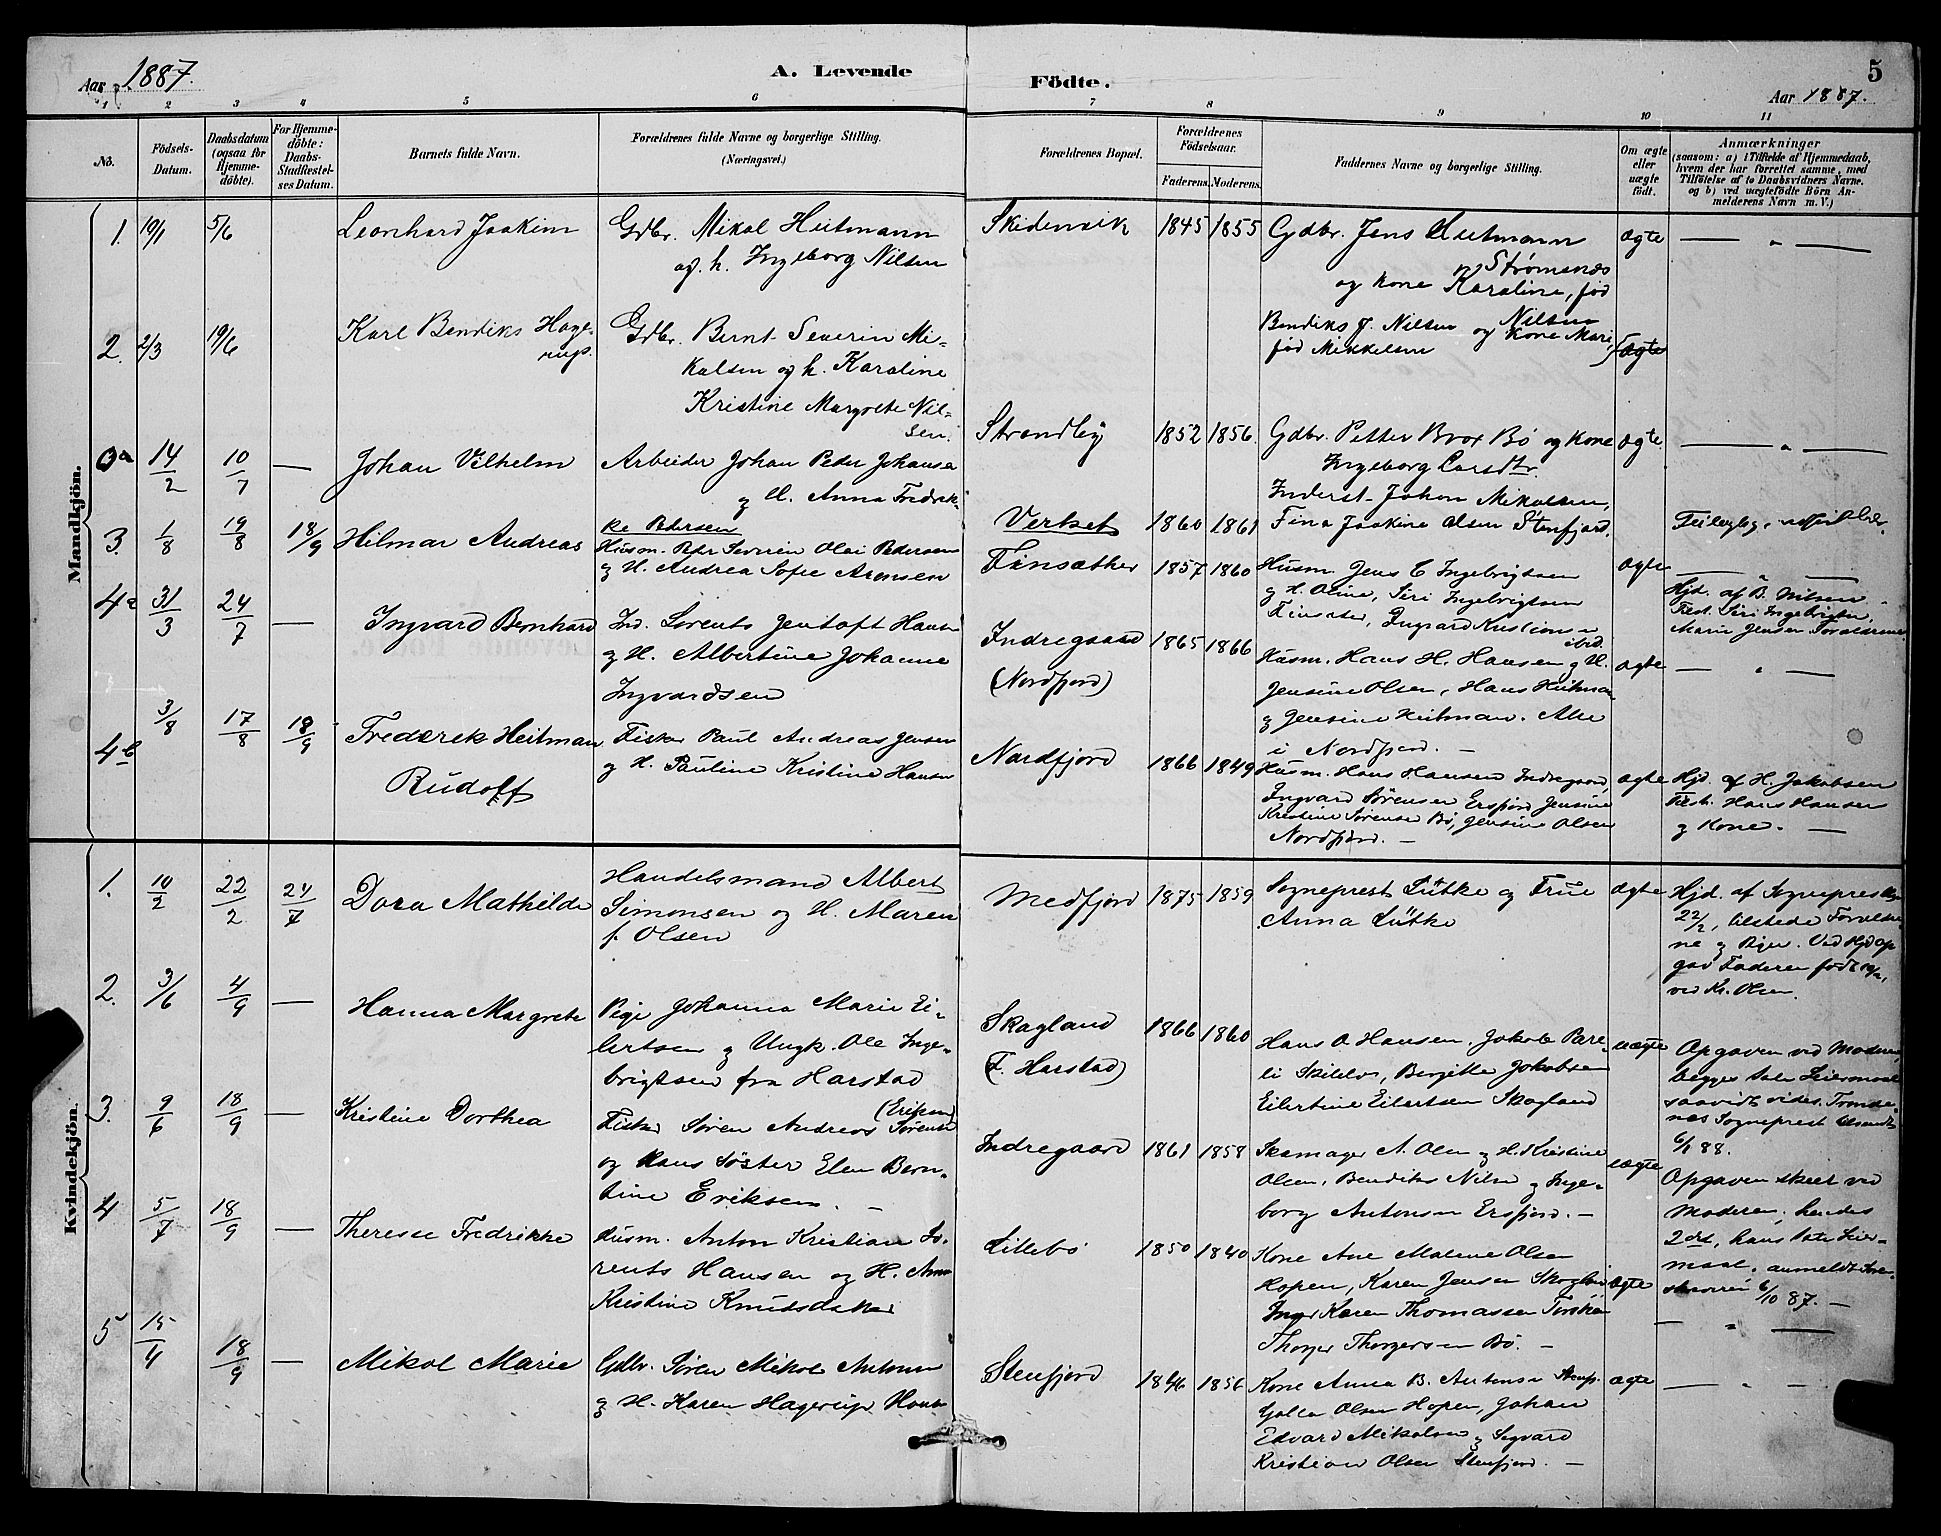 Aar 1887.
A. Levende Födte.
5
Aar 1887.
1 2 3 4 5 6 7 8 9 10 11
No.
Födsels-Datum.
Daabsdatum (ogsaa for Hjemmedöbte).
For Hjemmedöbte: Daabs-Stadfestelses Datum.
Barnets fulde Navn.
Forældrenes fulde Navne og borgerlige Stilling.
(Næringsvei.)
Forældrenes Bopæl.
Forældrenes Födselsaar.
Faderens. Moderens.
Faddernes Navne og borgerlige Stilling.
Om ægte eller uægte födt.
Anmærkninger
(saasom: a) i Tilfælde af Hjemmedaab, hvem der har forrettet samme, med Tilföielse af to Daabsvidners Navne. og b) ved uægtefödte Börn Anmelderens Navn m. V.)
Mandkjön.
1. 19/1 5/6
Leonhard Joakim
Gdbr. Mikal Heitmann
og h. Ingeborg Nilsen
1845 1855
Gdbr. Jens Heitmann
Strømsnæs
og kone Karoline, fød
Nilsen
ægte — " —
2. 2/3 19/6
Karl Bendiks Hage-
rup.
Gdbr. Bernt Severin Mi-
kalsen og h. Karoline
Kristine Margrete Nil-
sen.
Bendiks J. Nilsen og kone Mari,
fød Mikkelsen
ægte
Strandby 1852 1856
Gdbr. Petter Brox Bö og kone
Ingeborg Larsdtr.
ægte. — " —
14/2 10/7 —
Johan Vilhelm
Arbeider Johan Peder Johansen
og H. Anna Fredrik-
ke Pedersen
Verket 1860 1861
Inderst Johan Mikalsen,
Fina Joakine Olsen Stenfjord.
3. 1/8 19/8 18/9
Hilmar Andreas
Husm. Pdr Severin Olai Pedersen
og H. Andrea Sofie Aronsen
Finsæther 1857 1860
Husm. Jens C Ingebrigtsen
og H. Oline, Siri Ingebrigtsen
Finsæter, Ingvard Kristiansen
ibid.
ægte
Hjd. af B. Nilsen
Test. Siri Ingebrigtsen,
Marie Jensen Forældrene
4a 31/3 24/7 —
Ingvard Bernhard
Ind. Lorents Jentoft Hansen
og H. Albertine Johanne
Ingvardsen
Indregaard
(Nordfjord)
1865 1866
Husm. Hans H. Hansen og H.
Jensine Olsen, Hans Heitman
og Jensine Heitman. Alle
i Nordfjord. —
ægte — " —
4b 3/8 17/8 18/9
Frederek Heitman
Rudolf
Fisker Paul Andreas Jensen
og H. Pauline Kristine Hansen
Nordfjord 1866 1849
Husm. Hans Hansen Indregaard,
Ingvard Sørensen Ersfjord Jensine
Kristine Sørensen Bö, Jensine Olsen
Nordfjord. —
ægte
Hjd. af H. Jakobsen
Test. Hans Hansen
og Kone. —
Kvindekjön.
1. 10/2 22/2 24/7
Dora Mathilde
Handelsmand Albert
Simonsen og H. Maren
f. Olsen
Medfjord 1875 1859
Sogneprest Lütke og Frue
Anna Lütke
ægte
Hjd. af Sogneprest
22/2, tilstede Forældre-
ne og Piger. Ved Hjd op-
gav Faderen født 10/2,
ved Kr. Olsen.
2. 3/6 4/9 —
Hanna Margrete
Pige Johanna Marie Ei-
lertsen og Ungk. Ole Inge-
brigtsen fra Harstad
Skagland
(F. Harstad)
1866 1860
Hans O Hansen, Jakob Pare-
li Skildv, Bergitte Jakobsen
Eilertine Eilertsen Skagland
uægte
Opgaven ved Moderen,
begges 1ste Leiermaal
saavidt vides. Tronde-
næs Sogneprest tilsendt
6/1 88.
3. 9/6 18/9 —
Kristine Dorthea
(Eriksen)
Fisker Søren Andreas Sørensen
og hans Søster Elen Bern-
tine Eriksen. —
Indregaard 1861 1858
Skomager A. Olsen og H. Kristine
Olsen, Bendiks Nilsen og Inge-
borg Antonsen Ersfjord. —
uægte
Opgaven skeet ved
Moderen; hendes
2det, hans 1ste Leier-
maal.
6/10 87. —
4 5/7 18/9 —
Therese Fredrikke
Husm. Anton Kristian Lo-
rents Hansen og H. Anna
Kristine Knudsdatter
Lillebø 1850 1840
Kone Ane Malene Olsen
Hopen, Karen Jensen Skogland
Inger Karen Thomassen Torsken
Thorger Thorgersen Bö. —
ægte — " —
5 15/4 18/9 —
Mikol Marie
Gdbr. Søren Mikal Antonsen
og H. Karen Hagerup Hansen
Stenfjord 1846 1856
Kone Anna B. Antonsen Stenfj.
Olsen Hopen, Johan
Edvard Mikalsen og Sigvard
Kristian Olsen Stenfjord. —
ægte — " —